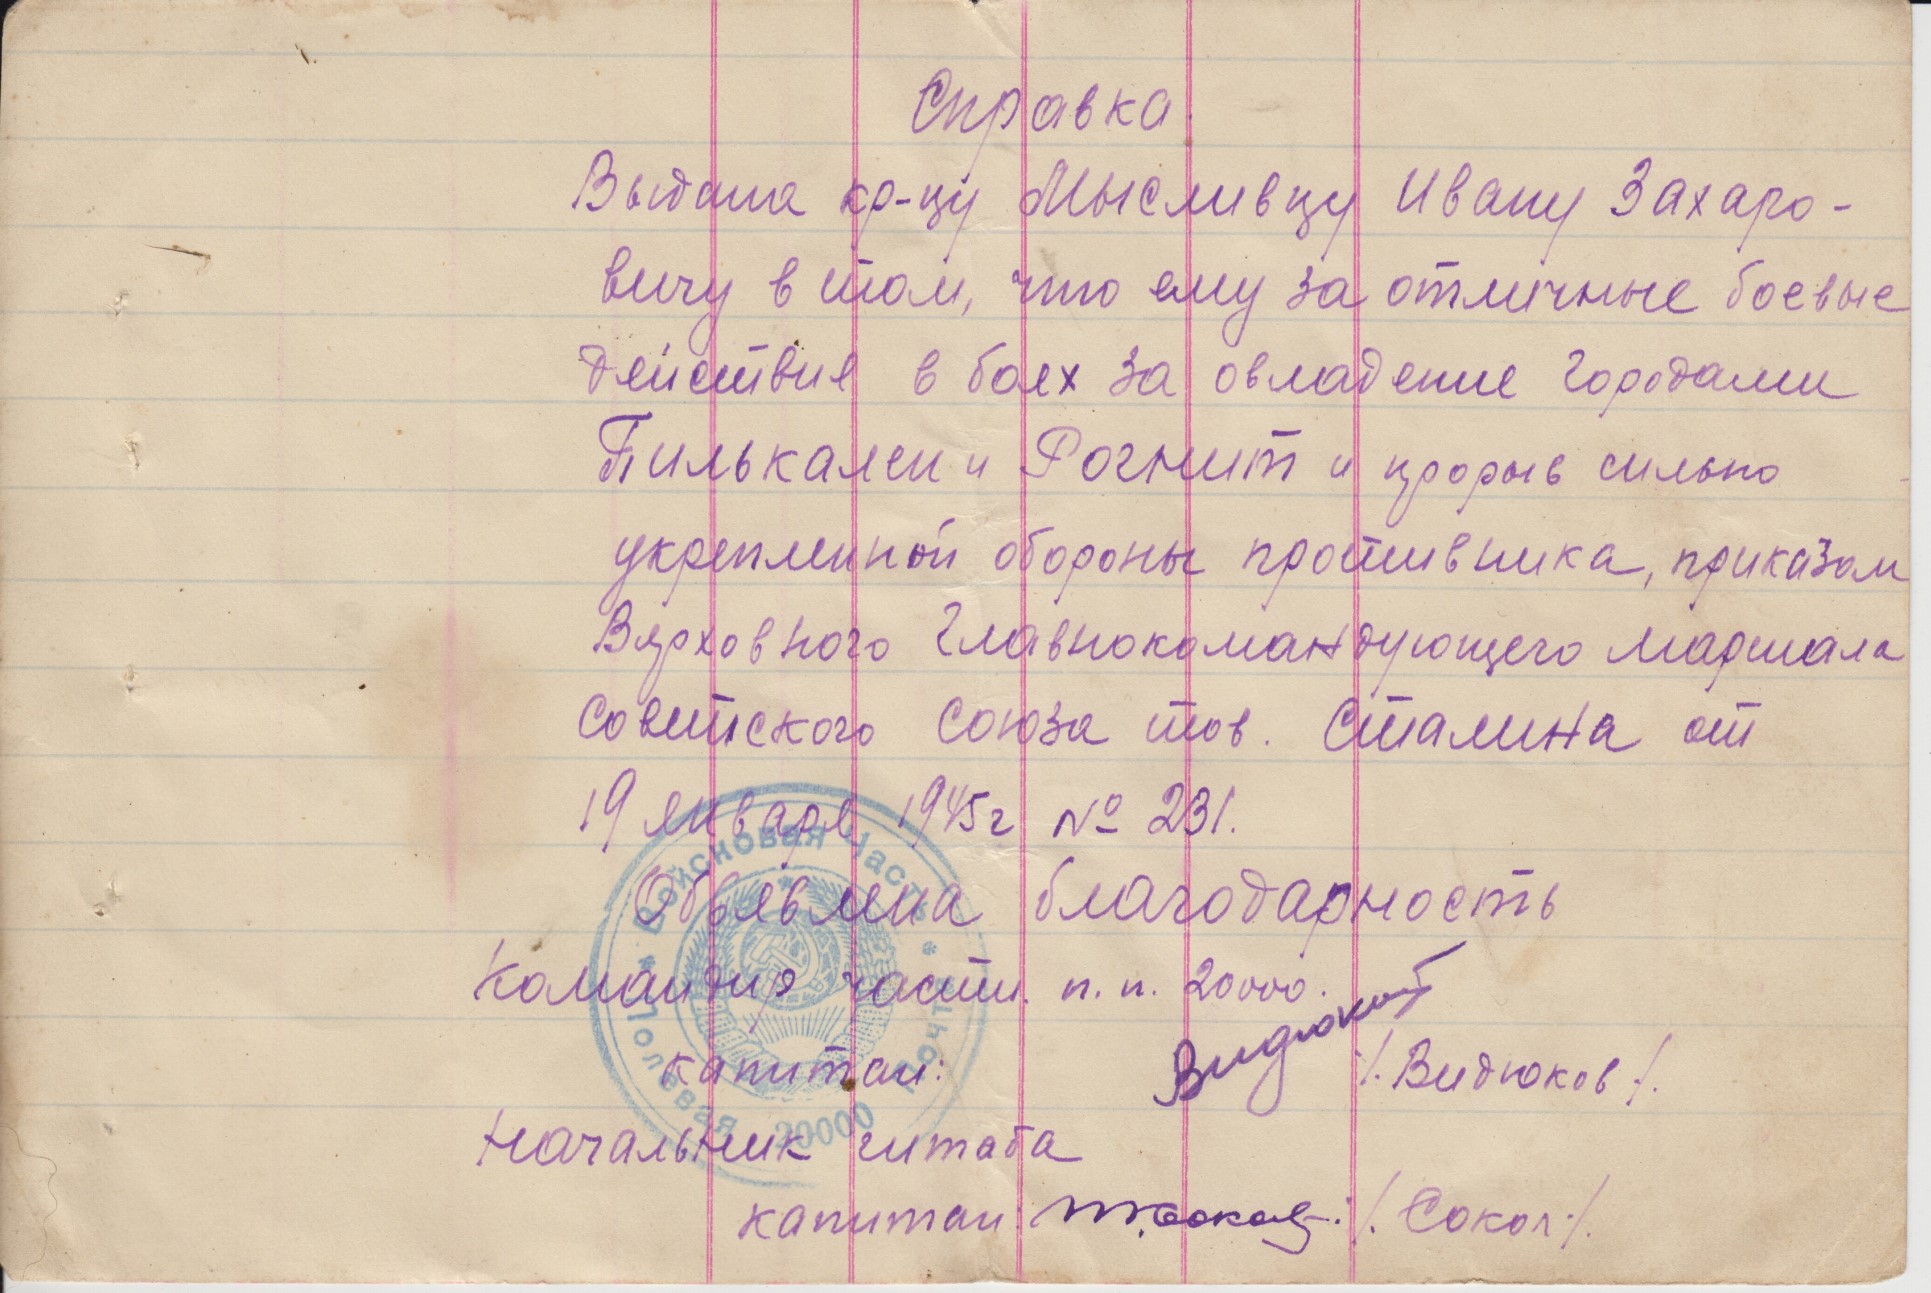 Справка.
Выдана кр-цу Мысливцу Ивану Захаро-
вичу в том, что ему за отличные боевые
действия в боях за овладение городами
Пилькален и Рогнит и прорыв сильно
укрепленной обороны противника, приказом
Верховного Главнокомандующего Маршала
Советского Союза тов. Сталина от
19 января 1945г № 231.
Объявлена благодарность
Командир части п.п. 20000.
капитан: Видюков /. Видюков /.
Начальник штаба
капитан /. Сокол /.
Войсковая Часть * Полевая Почта * 20000